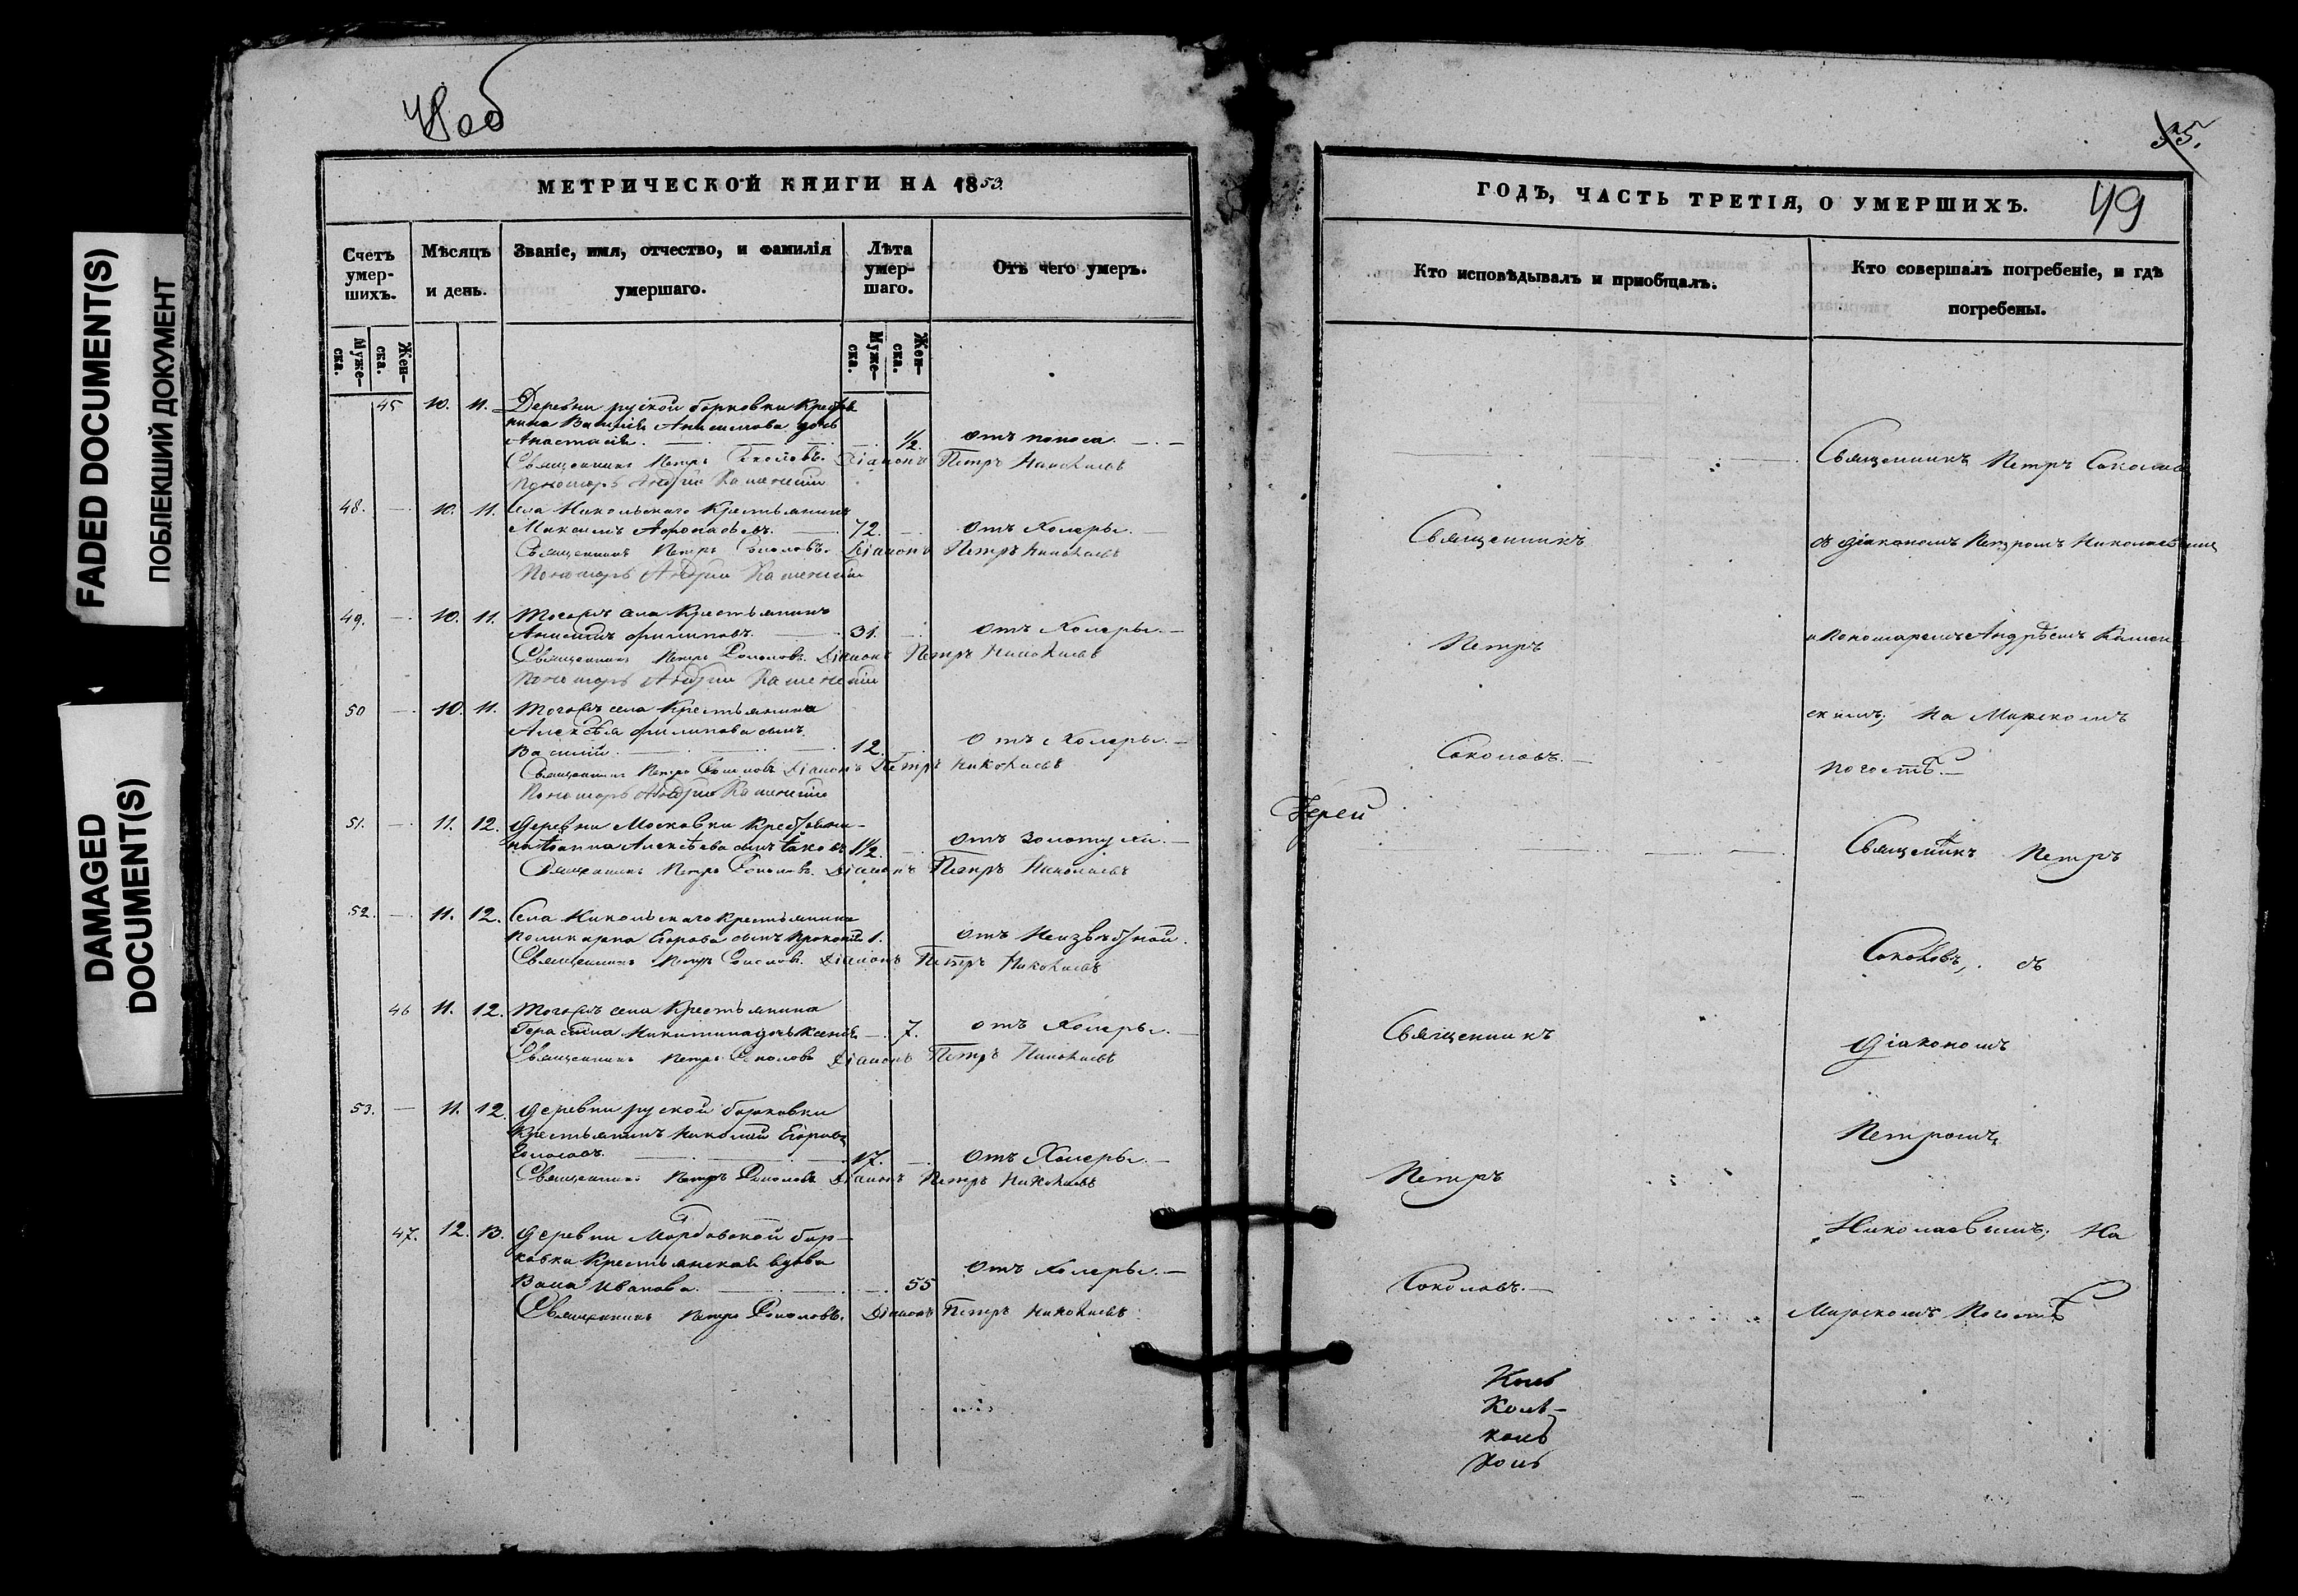 FADED DOCUMENT(S)
ПОБЛЕКШИЙ ДОКУМЕНТ
DAMAGED
DOCUMENT(S)
48об
МЕТРИЧЕСКОЙ КНИГИ НА 1853.
Счетъ умер-шихъ.
Муже-ска.
Жен-ска.
Мѣсяцъ и день.
Званіе, имя, отчество, и фамилія умершаго.
Лѣта умер-шаго.
Муже-ска.
Жен-ска.
Отъ чего умеръ.
45 10. 11. Деревни руской борковки Кресть
нина Василія Анисимова дочь
Анастасія. ½. отъ поноса.
Священникъ Петръ Соколовъ. Діаконъ Петръ Николаевъ
Пономарь Андрей Каменскій
48. 10. 11. Села Никольскаго Крестьянинъ
Максимъ Афонасьевъ. 72. отъ Холеры.
Священникъ Петръ Соколовъ. Діаконъ Петръ Николаевъ
Пономарь Андрей Каменскій
49. 10. 11. Тогожъ села Крестьянинъ
Анисимъ Филиповъ. 31. отъ Холеры.
Священникъ Петръ Соколовъ. Діаконъ Петръ Николаевъ
Пономарь Андрей Каменскій
50 10. 11. Тогожъ села Крестьянина
Алексѣя Филипова сынъ
Василій. 12. отъ Холеры.
Священникъ Петръ Соколовъ Діаконъ Петръ Николаевъ
Пономарь Андрей Каменскій
51. 11. 12. Деревни Московки Крестьяни-
на Іоанна Алексѣева сынъ Іаковъ 1½. отъ золотухи.
Священникъ Петръ Соколовъ. Діаконъ Петръ Николаевъ
52. 11. 12. Села Никольскаго Крестьянина
Поликарпа Егорова сынъ Прокопій 1. отъ Неизвѣстной.
Священникъ Петръ Соколовъ. Діаконъ Петръ Николаевъ
46 11. 12. Тогожъ села Крестьянина
Герасима Никитина дочь Ксенія 7. отъ Холеры.
Священникъ Петръ Соколовъ Діаконъ Петръ Николаевъ
53. 11. 12. Деревни руской борковки
Крестьянинъ Николай Егоровъ
17. отъ Холеры.
Священникъ Петръ Соколовъ Діаконъ Петръ Николаевъ
47. 12. 13. Деревни Мордовской бор-
ковки Крестьянская вдова
Васа Иванова. 55 отъ Холеры.
Священникъ Петръ Соколовъ. Діаконъ Петръ Николаевъ
35.
49
ГОДЪ, ЧАСТЬ ТРЕТІЯ, О УМЕРШИХЪ.
Кто исповѣдывалъ и пріобщалъ.
Кто совершалъ погребеніе, и гдѣ погребены.
Священникъ
Петръ
Соколовъ.
Іерей
Священникъ
Петръ
Соколовъ.
Священникъ Петръ Соколовъ
съ діакономъ Петромъ Николаевымъ
и Пономаремъ Андрѣемъ Камен
скимъ; На Мирскомъ
погостѣ.
Священникъ Петръ
Соколовъ, съ
діакономъ
Петромъ
Николаевымъ; На
Мирскомъ Погостѣ